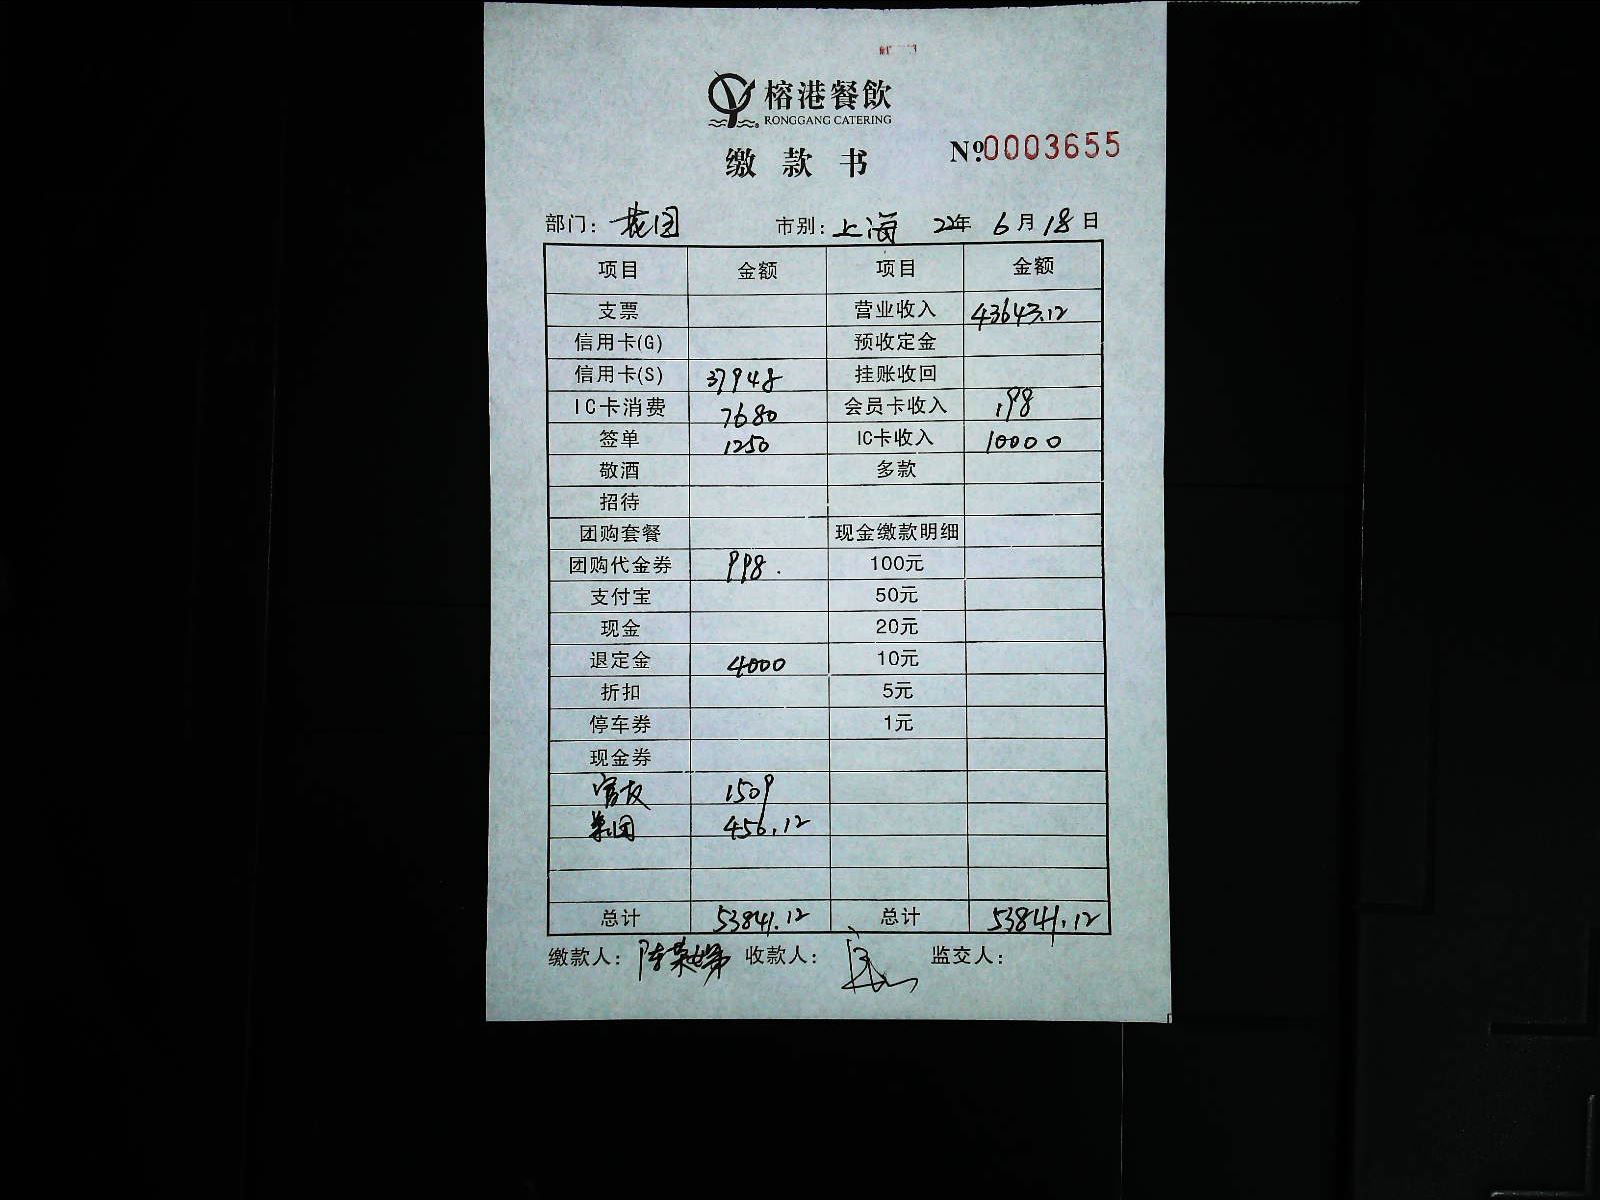 榕港餐飲
RONGGANG CATERING
缴款书 №0003655
部门: 花园 市别: 上海 22年 6月18日
项目 金额 项目 金额
支票 营业收入 43643.12
信用卡(G) 预收定金
信用卡(S) 37948 挂账收回
IC卡消费 7680 会员卡收入 198
签单 1250 IC卡收入 10000
敬酒 多款
招待
团购套餐 现金缴款明细
团购代金券 998.
支付宝 50元
现金 20元
退定金 4000 10元
折扣 5元
停车券 1元
现金券
1509
集团 456.12
总计 53841.12 总计 53841.12
缴款人: 陈荣娣 收款人: 监交人: